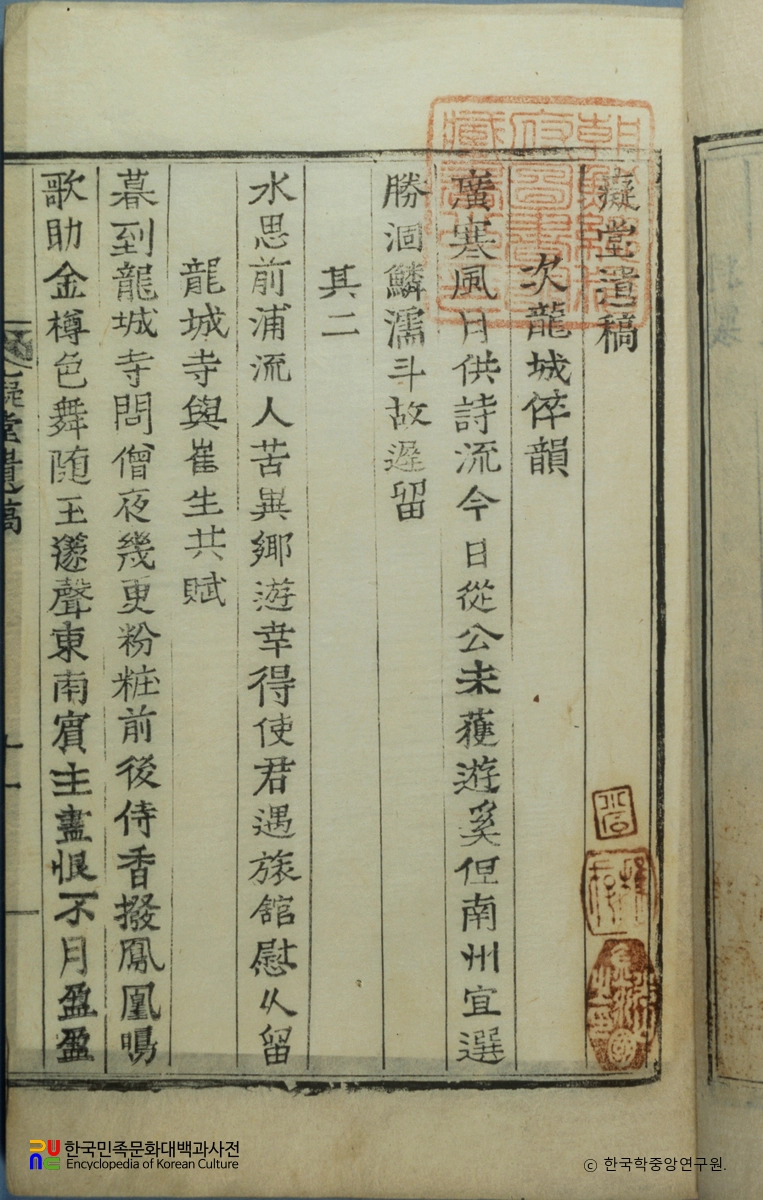 癡堂遺稿
次龍城倅韻
廣寒風日供詩流今日從公未蒦遊奚但南州宜選
勝涸鱗濡斗故遲留
其二
水思前浦流人苦異鄉遊幸得使君遇旅館慰久留
龍城寺與崔生共賦
暮到龍城寺問僧夜幾更粉粧前後侍香撥鳳凰鳴
歌助金樽色舞随玉邃聲東南賓主盡恨不月盈盈
癡堂遺稿
한국민족문화대백과사전
Encyclopedia of Korean Culture
ⓒ 한국학중앙연구원.